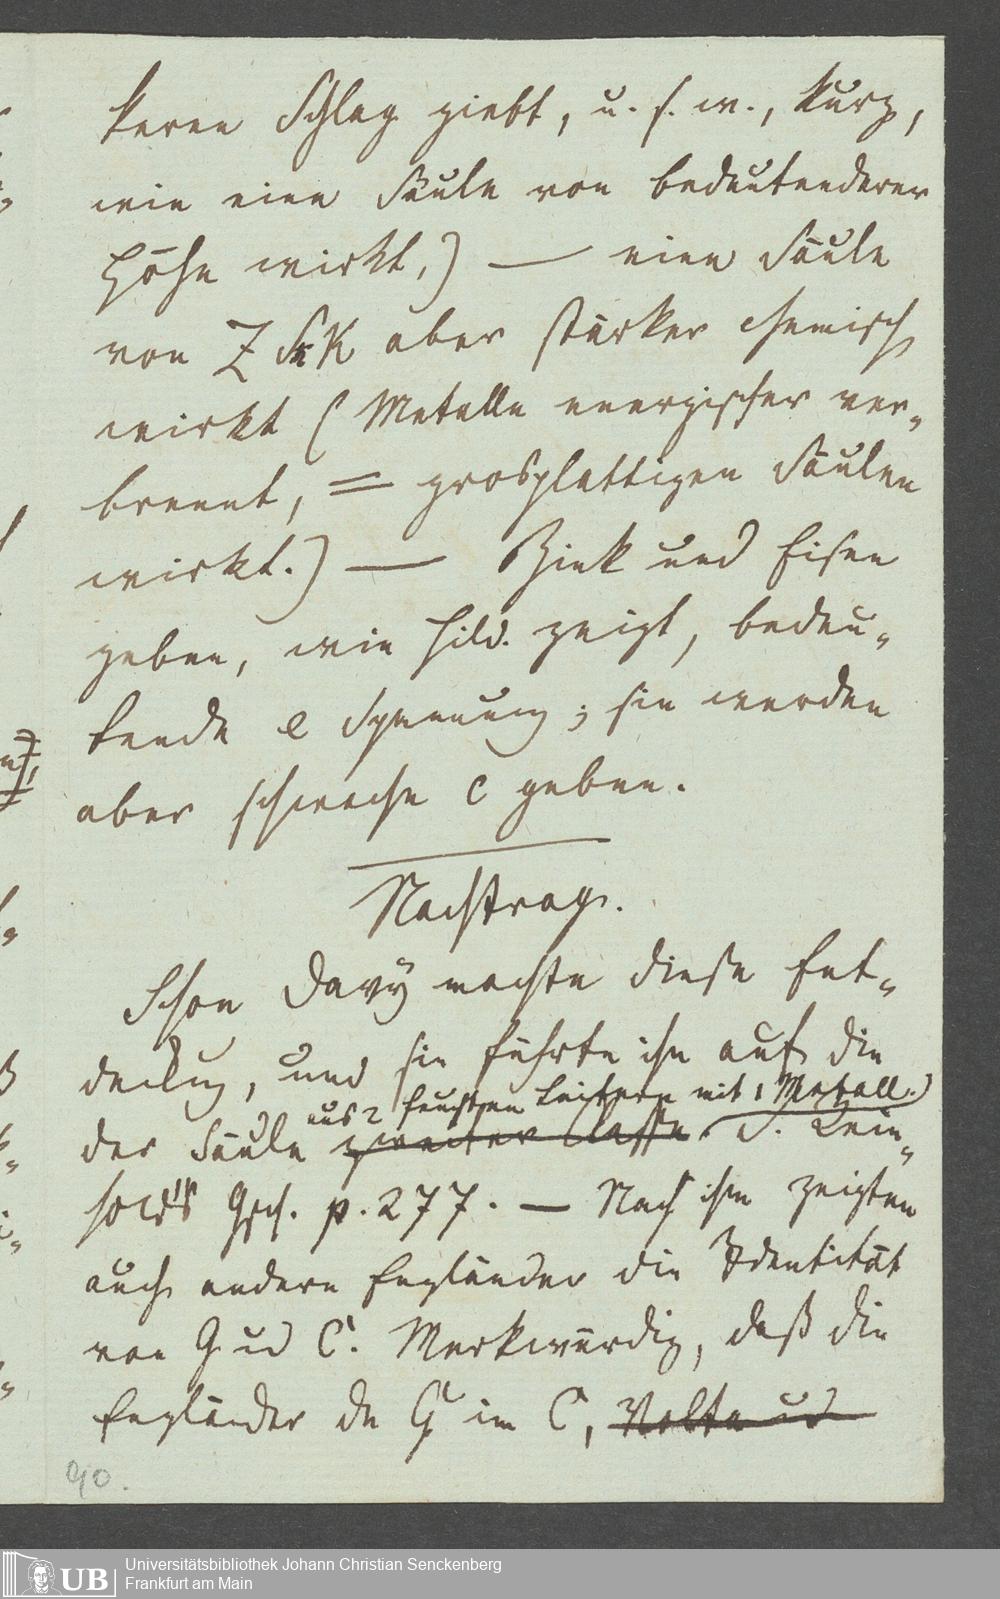 keren Schlag giebt, u. s. w., kurz,
wie eine Säule von bedeutenderer
Höhe wirkt,) — eine Säule
von Z K aber stärker chemisch
wirkt (Metalle energischer ver-
brennt, = grosplattigen Säulen
wirkt.) — Zink und Eisen
geben, wie Hild. zeigt, bedeu-
tende e Spannung; sie werden
aber schwache C geben.
Nachtrag.
Schon Davÿ machte diese Ent-
deckung, und sie führte ihn auf die
aus 2 feuchten Leitern mit 1 Metall.)
der Säule zweiter Classe. S. Rein-
hold's Gsch. p. 277. — Nach ihm zeigten
auch andere Engländer die Identität
von G und C. Merkwürdig, daß die
Engländer den G im C, Volta und
90.
UB
Universitätsbibliothek Johann Christian Senckenberg
Frankfurt am Main